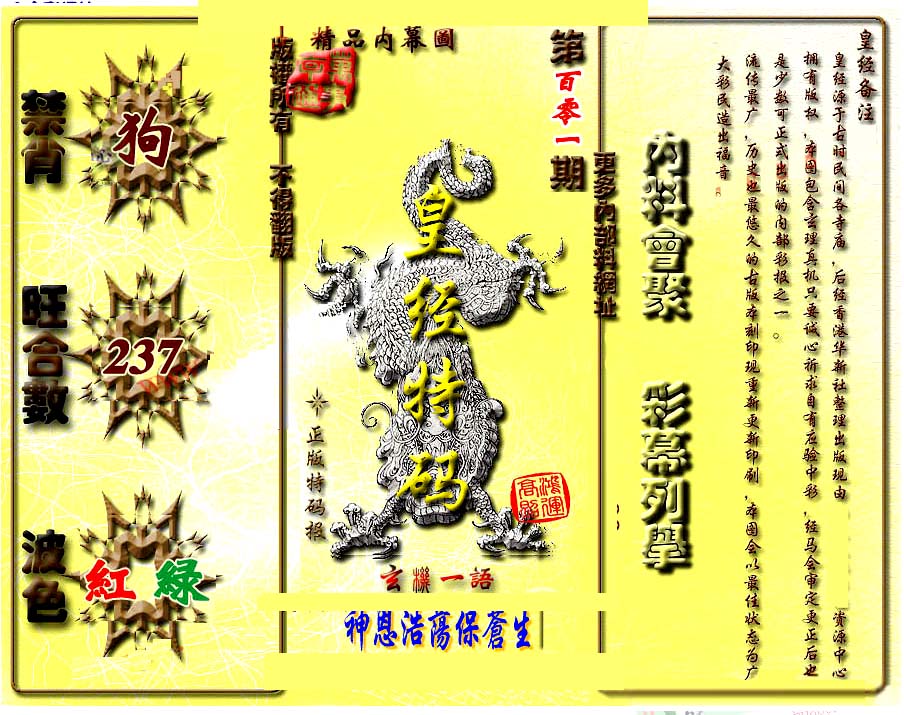 皇经备注
皇经源于古时民间各寺庙，后经香港华新社整理出版现由
资源中心
拥有版权，本图包含玄理真机只要诚心祈求自有应验中彩，经马会审定更正后也
是少数可正式出版的内部彩报之一。
流传最广，历史也最悠久的古版本刻印现重新更新印刷，本图会以最佳状态为广
大彩民造出福音
内料會聚
彩幕列舉
更多內部料網址
第百零一期
精品內幕圖
版權所有 不得翻版
皇经特码
正版特码报
鴻運
高照
玄機一語
神恩浩蕩保蒼生
禁肖
狗
旺合數
237
波色
紅 綠